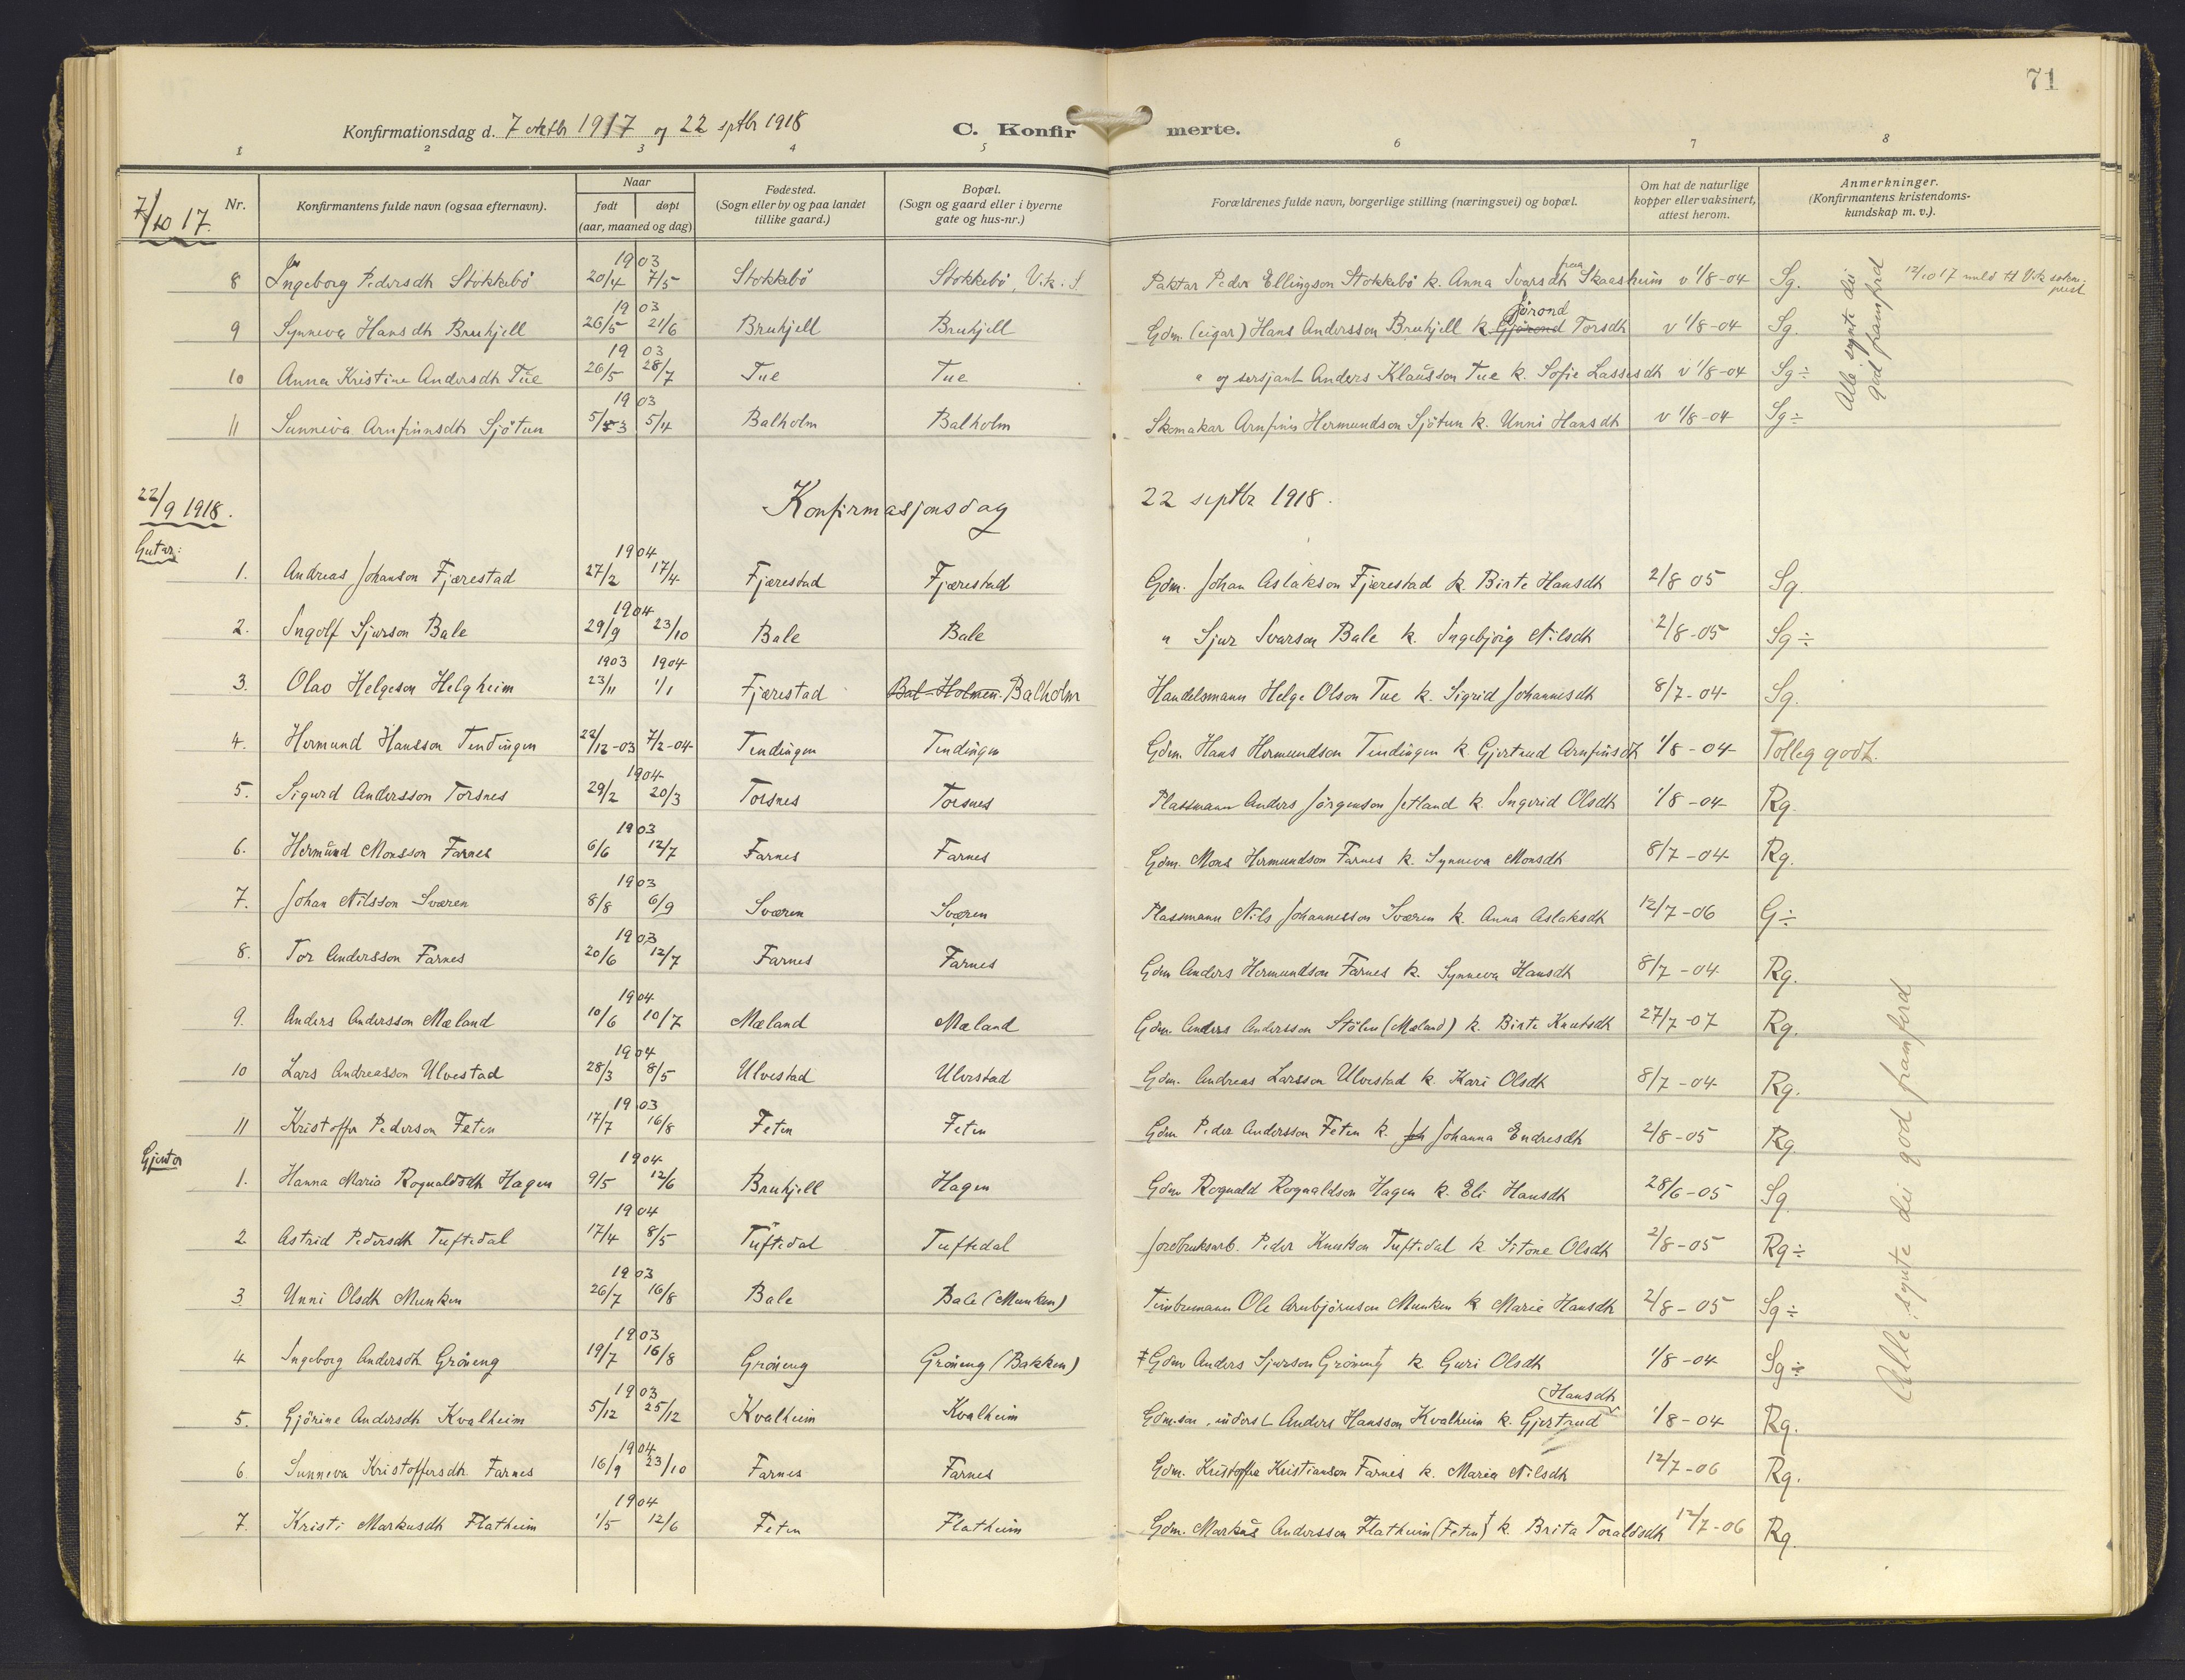 71
Konfirmationsdag d. 7 oktbr 1917 og 22 sptbr 1918 C. Konfirmerte.
1 2 3 4 5 6 7 8
7/10 17.
Nr. Konfirmantens fulde navn (ogsaa efternavn). Naar født døpt (aar, maaned og dag) Fødested. (Sogn eller by og paa landet tillike gaard.) Bopæl. (Sogn og gaard eller i byerne gate og hus-nr.) Forældrenes fulde navn, borgerlige stilling (næringsvei) og bopæl. Om hat de naturlige kopper eller vaksinert, attest herom. Anmerkninger. (Konfirmantens kristendomskundskap m. v.).
8 Ingeborg Pedersdtr Stokkebö 1903 20/4 7/5 Stokkebö Stokkebö, Vik i S. Paktar Peder Ellingson Stokkebö k. Anna Ivarsdtr fraa Skaasheim v 1/8-04 Sg. 12/10 17 meld til Vik sokneprest
9 Synneva Hansdtr Bruhjell 1903 26/5 21/6 Bruhjell Bruhjell Gdm. (eigar) Hans Andersson Bruhjell k. Gjörond Jörond Torsdtr v 1/8-04 Sg.
10 Anna Kristine Andersdtr Tue 1903 26/5 28/7 Tue Tue " og sersjant Anders Klausson Tue k. Sofie Lassesdtr v 1/8-04 Sg÷
11 Sunneva Arnfinnsdtr Sjötun 1903 5/3 5/4 Balholm Balholm Skomakar Arnfinn Hermundson Sjötun k. Unni Hansdtr v 1/8-04 Sg÷
Alle synte dei god framferd
22/9 1918. Konfirmasjonsdag 22 septbr 1918.
Gutar:
1. Andreas Johanson Fjærestad 1904 27/2 17/4 Fjærestad Fjærestad Gdm. Johan Aslakson Fjærestad k. Birte Hansdtr 2/8 05 Sg.
2. Ingolf Sjurson Bale 1904 29/9 23/10 Bale Bale " Sjur Ivarson Bale k. Ingebjörg Nilsdtr 2/8-05 Sg÷
3. Olav Helgeson Helgheim 1903 1904 23/11 1/1 Fjærestad Bal Holmen. Balholm Handelsmann Helge Olson Tue k. Sigrid Johannesdtr 8/7-04 Sg.
4. Hermund Hansson Tendingen 22/12-03 7/2-04 Tendingen Tendingen Gdm. Hans Hermundson Tendingen k. Gjertrud Arnfinsdtr 1/8-04 Tolleg godt.
5. Sigurd Andersson Torsnes 1904 29/2 20/3 Torsnes Torsnes Plassmann Anders Jörgenson Jetland k. Ingerid Olsdtr 1/8-04 Rg.
6. Hermund Monsson Farnes 1903 6/6 12/7 Farnes Farnes Gdm. Mons Hermundson Farnes k. Synneva Monsdtr 8/7-04 Rg.
7. Johan Nilsson Sværen 1903 8/8 6/9 Sværen Sværen Plassmann Nils Johannesson Sværen k. Anna Aslaksdtr 12/7-06 G÷
8. Tor Andersson Farnes 1903 20/6 12/7 Farnes Farnes Gdm Anders Hermundson Farnes k. Synneva Hansdtr 8/7-04 Rg.
9. Anders Andersson Mæland 1904 10/6 10/7 Mæland Mæland Gdm. Anders Andersson Stölen (Mæland) k. Birte Knutsdtr 27/7-07 Rg.
10 Lars Andreasson Ulvestad 1904 28/3 8/5 Ulvestad Ulvestad Gdm. Andreas Larsson Ulvestad k. Kari Olsdtr 8/7-04 Rg.
11 Kristoffer Pederson Feten 1903 17/7 16/8 Feten Feten Gdm Peder Andersson Feten k. Johanna Endresdtr 2/8-05 Rg.
Gjentor
1. Hanna Maria Rognaldsdtr Hagen 1904 9/5 12/6 Bruhjell Hagen Gdm Rognald Rognaldson Hagen k. Eli Hansdtr 28/6-05 Sg.
2. Astrid Pedersdtr Tuftedal 1904 17/4 8/5 Tuftedal Tuftedal Jordbruksarb. Peder Knutson Tuftedal k. Sitone Olsdtr 2/8-05 Rg÷
3. Unni Olsdtr Munken 1903 26/7 16/8 Bale Bale (Munken) Timbremann Ole Arnbjörnson Munken k Marie Hansdtr 2/8-05 Sg÷
4 Ingeborg Andersdtr Gröneng 1903 19/7 16/8 Gröneng Gröneng (Bakken) Gdm Anders Sjurson Gröneng † k. Guri Olsdtr 1/8-04 Sg÷
5. Gjörine Andersdtr Kvalheim 1903 5/12 25/12 Kvalheim Kvalheim Gdm.son, Anders Hansson Kvalheim k. Gjertrud Hansdtr 1/8-04 Rg.
6. Sunneva Kristoffersdtr Farnes 1904 16/9 23/10 Farnes Farnes Gdm. Kristoffer Kristianson Farnes k. Maria Nilsdtr 12/7-06 Rg.
7. Kristi Markusdtr Flatheim 1904 1/5 12/6 Feten Flatheim Gdm. Markus Andersson Flatheim (Feten) † k. Brita Toraldsdtr 12/7-06 Rg.
Alle synte dei god framferd